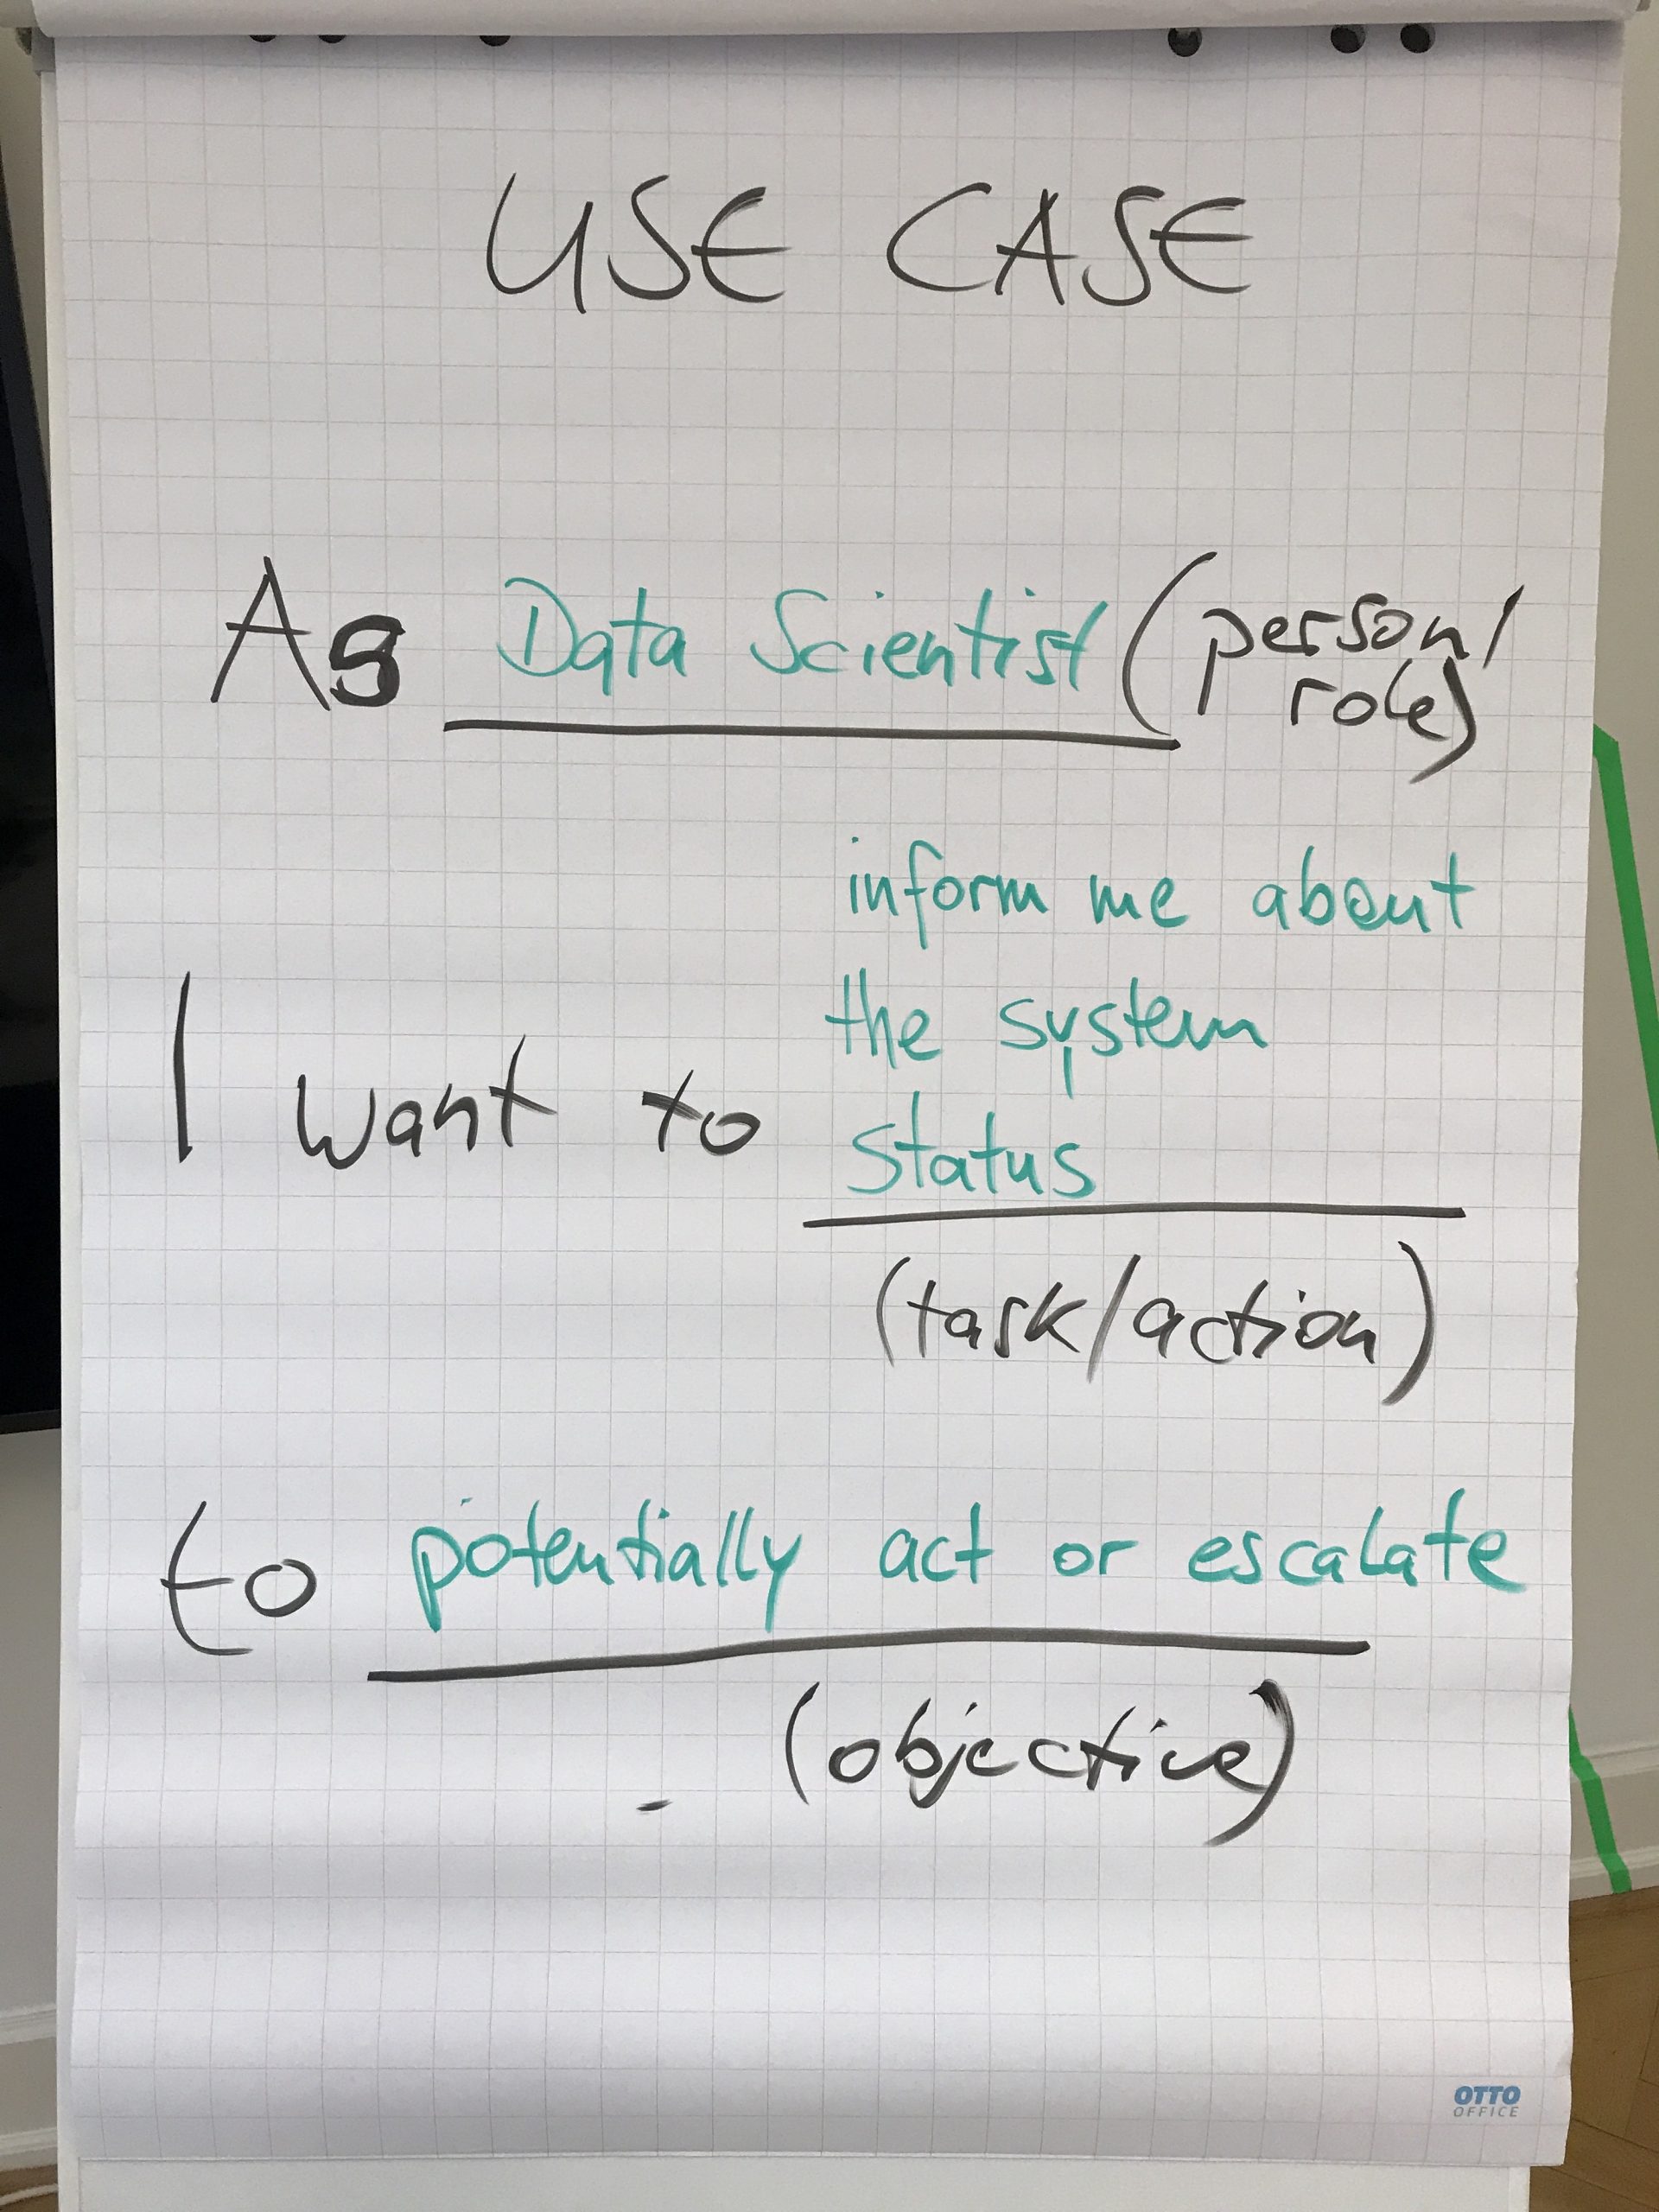 USE CASE
As Data Scientist (person/
role)
inform me about
the system
I want to status
(task/action)
to potentially act or escalate
(objective)
OTTO
OFFICE